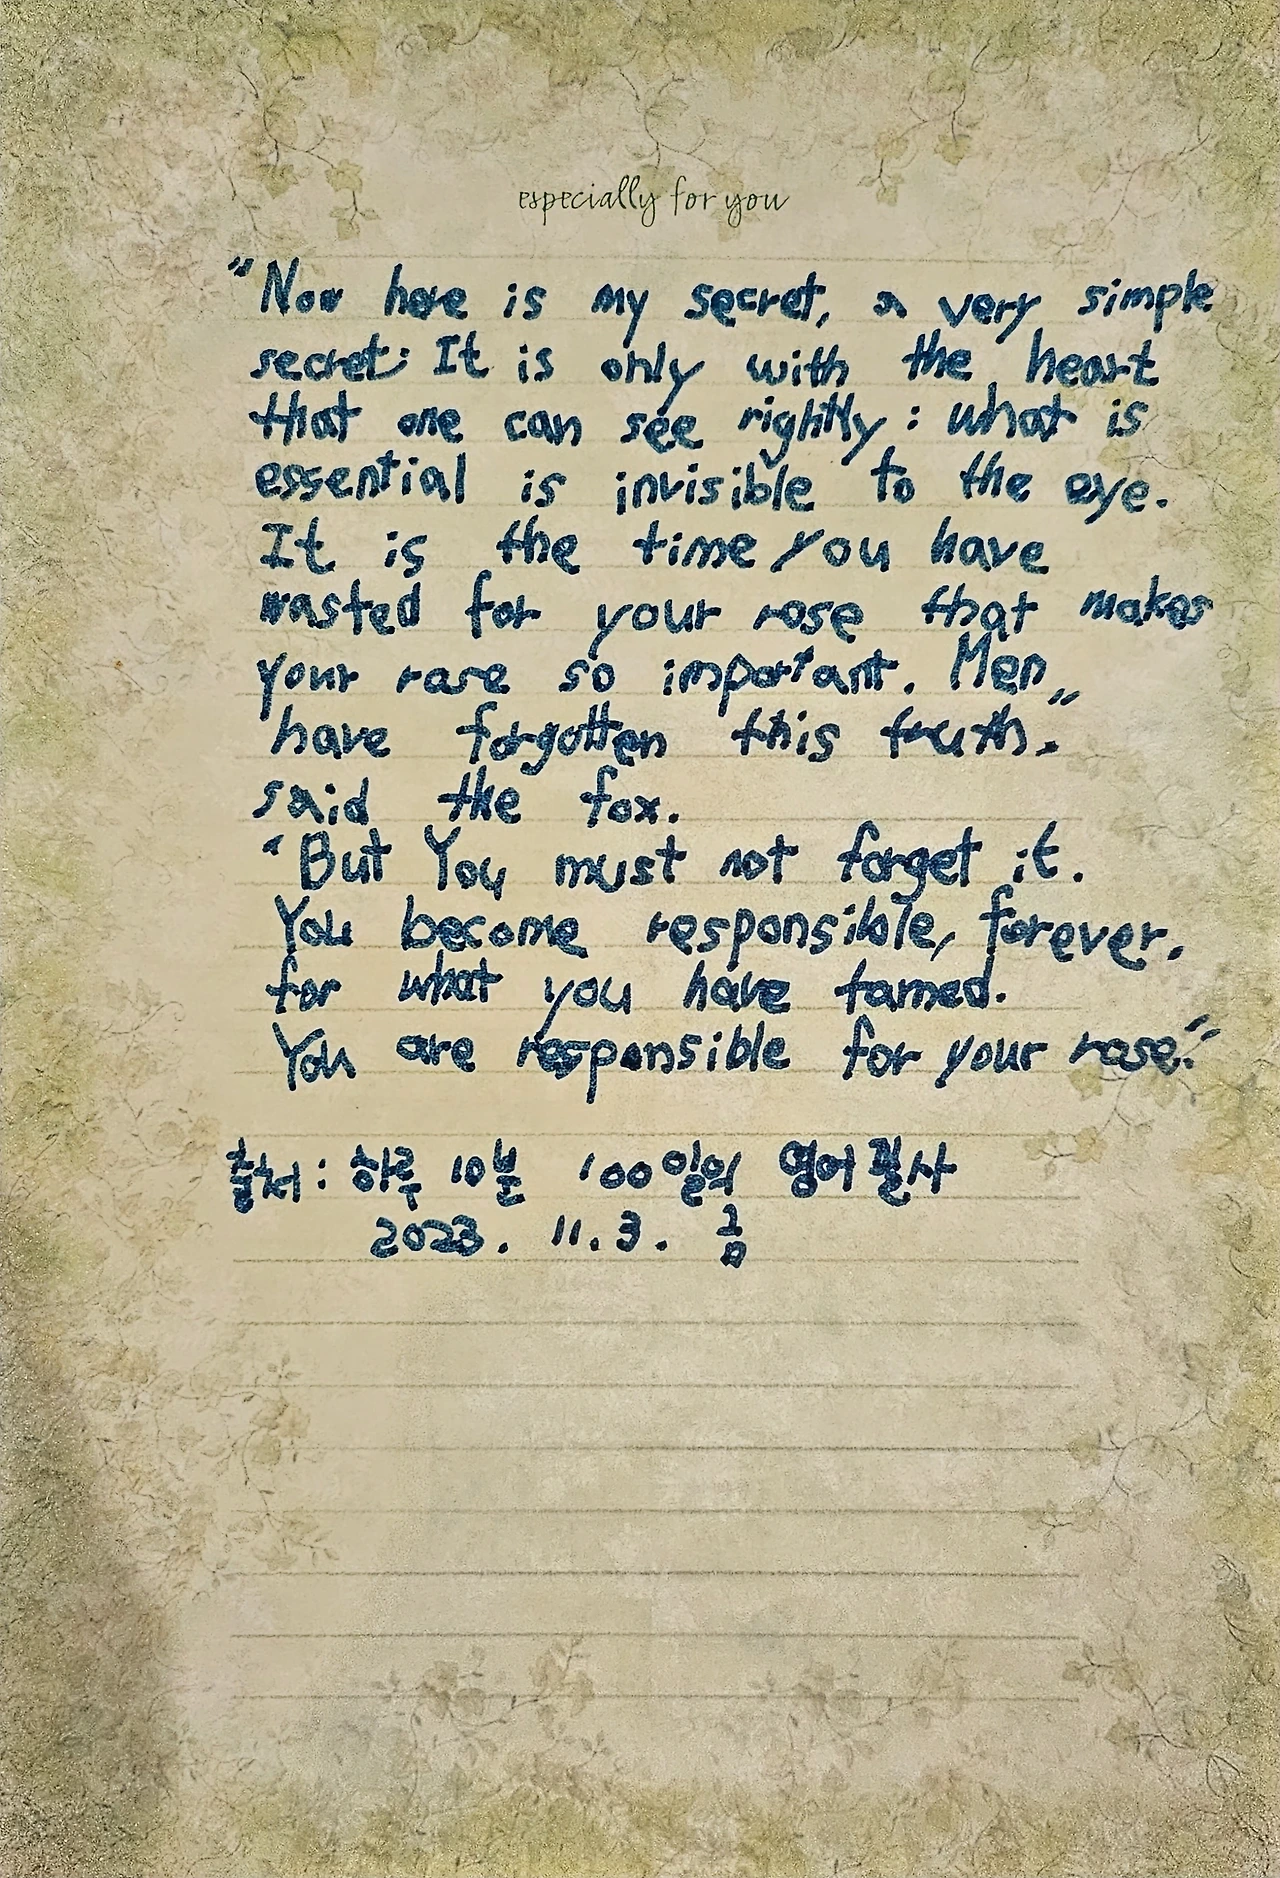 especially for you
"Now here is my secret, a very simple
secret: It is only with the heart
that one can see rightly : what is
essential is invisible to the eye.
It is the time you have
wasted for your rose that makes
your rose so important. Men
have forgotten this truth."
said the fox.
"But You must not forget it.
You become responsible, forever,
for what you have tamed.
You are responsible for your rose."
출처 : 하루 10분 100일의 영어필사
2023. 11. 3. 금